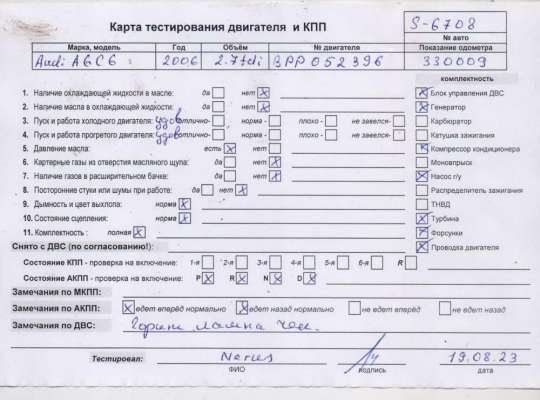 Карта тестирования двигателя и КПП
S-6708
№ авто
Марка, модель Год Объём № двигателя Показание одометра
Audi A6C6 2006 2.7tdi BPP052396 330009
комплектность
1. Наличие охлаждающей жидкости в масле: да нет X
2. Наличие масла в охлаждающей жидкости: да нет X
3. Пуск и работа холодного двигателя: удов отлично- норма - плохо - не завелся-
4. Пуск и работа прогретого двигателя: удов отлично- норма - плохо - не завелся-
5. Давление масла: есть X нет
6. Картерные газы из отверстия масляного щупа: да нет X
7. Наличие газов в расширительном бачке: да нет X
8. Посторонние стуки или шумы при работе: да нет X
9. Дымность и цвет выхлопа: норма X
10. Состояние сцепления: норма X
11. Комплектность : полная X
X Блок управления ДВС
X Генератор
Карбюратор
Катушка зажигания
X Компрессор кондиционера
Моновпрыск
X Насос г/у
Распределитель зажигания
ТНВД
X Турбина
X Форсунки
X Проводка двигателя
Снято с ДВС (по согласованию!):
Состояние КПП - проверка на включение: 1-я 2-я 3-я 4-я 5-я 6-я R
Состояние АКПП - проверка на включение: P X R X N X D X
Замечания по МКПП:
Замечания по АКПП: X едет вперёд нормально X едет назад нормально не едет вперёд не едет назад
Замечания по ДВС: Горит лампа чек.
Тестировал: Nerius 19.08.23
ФИО подпись дата